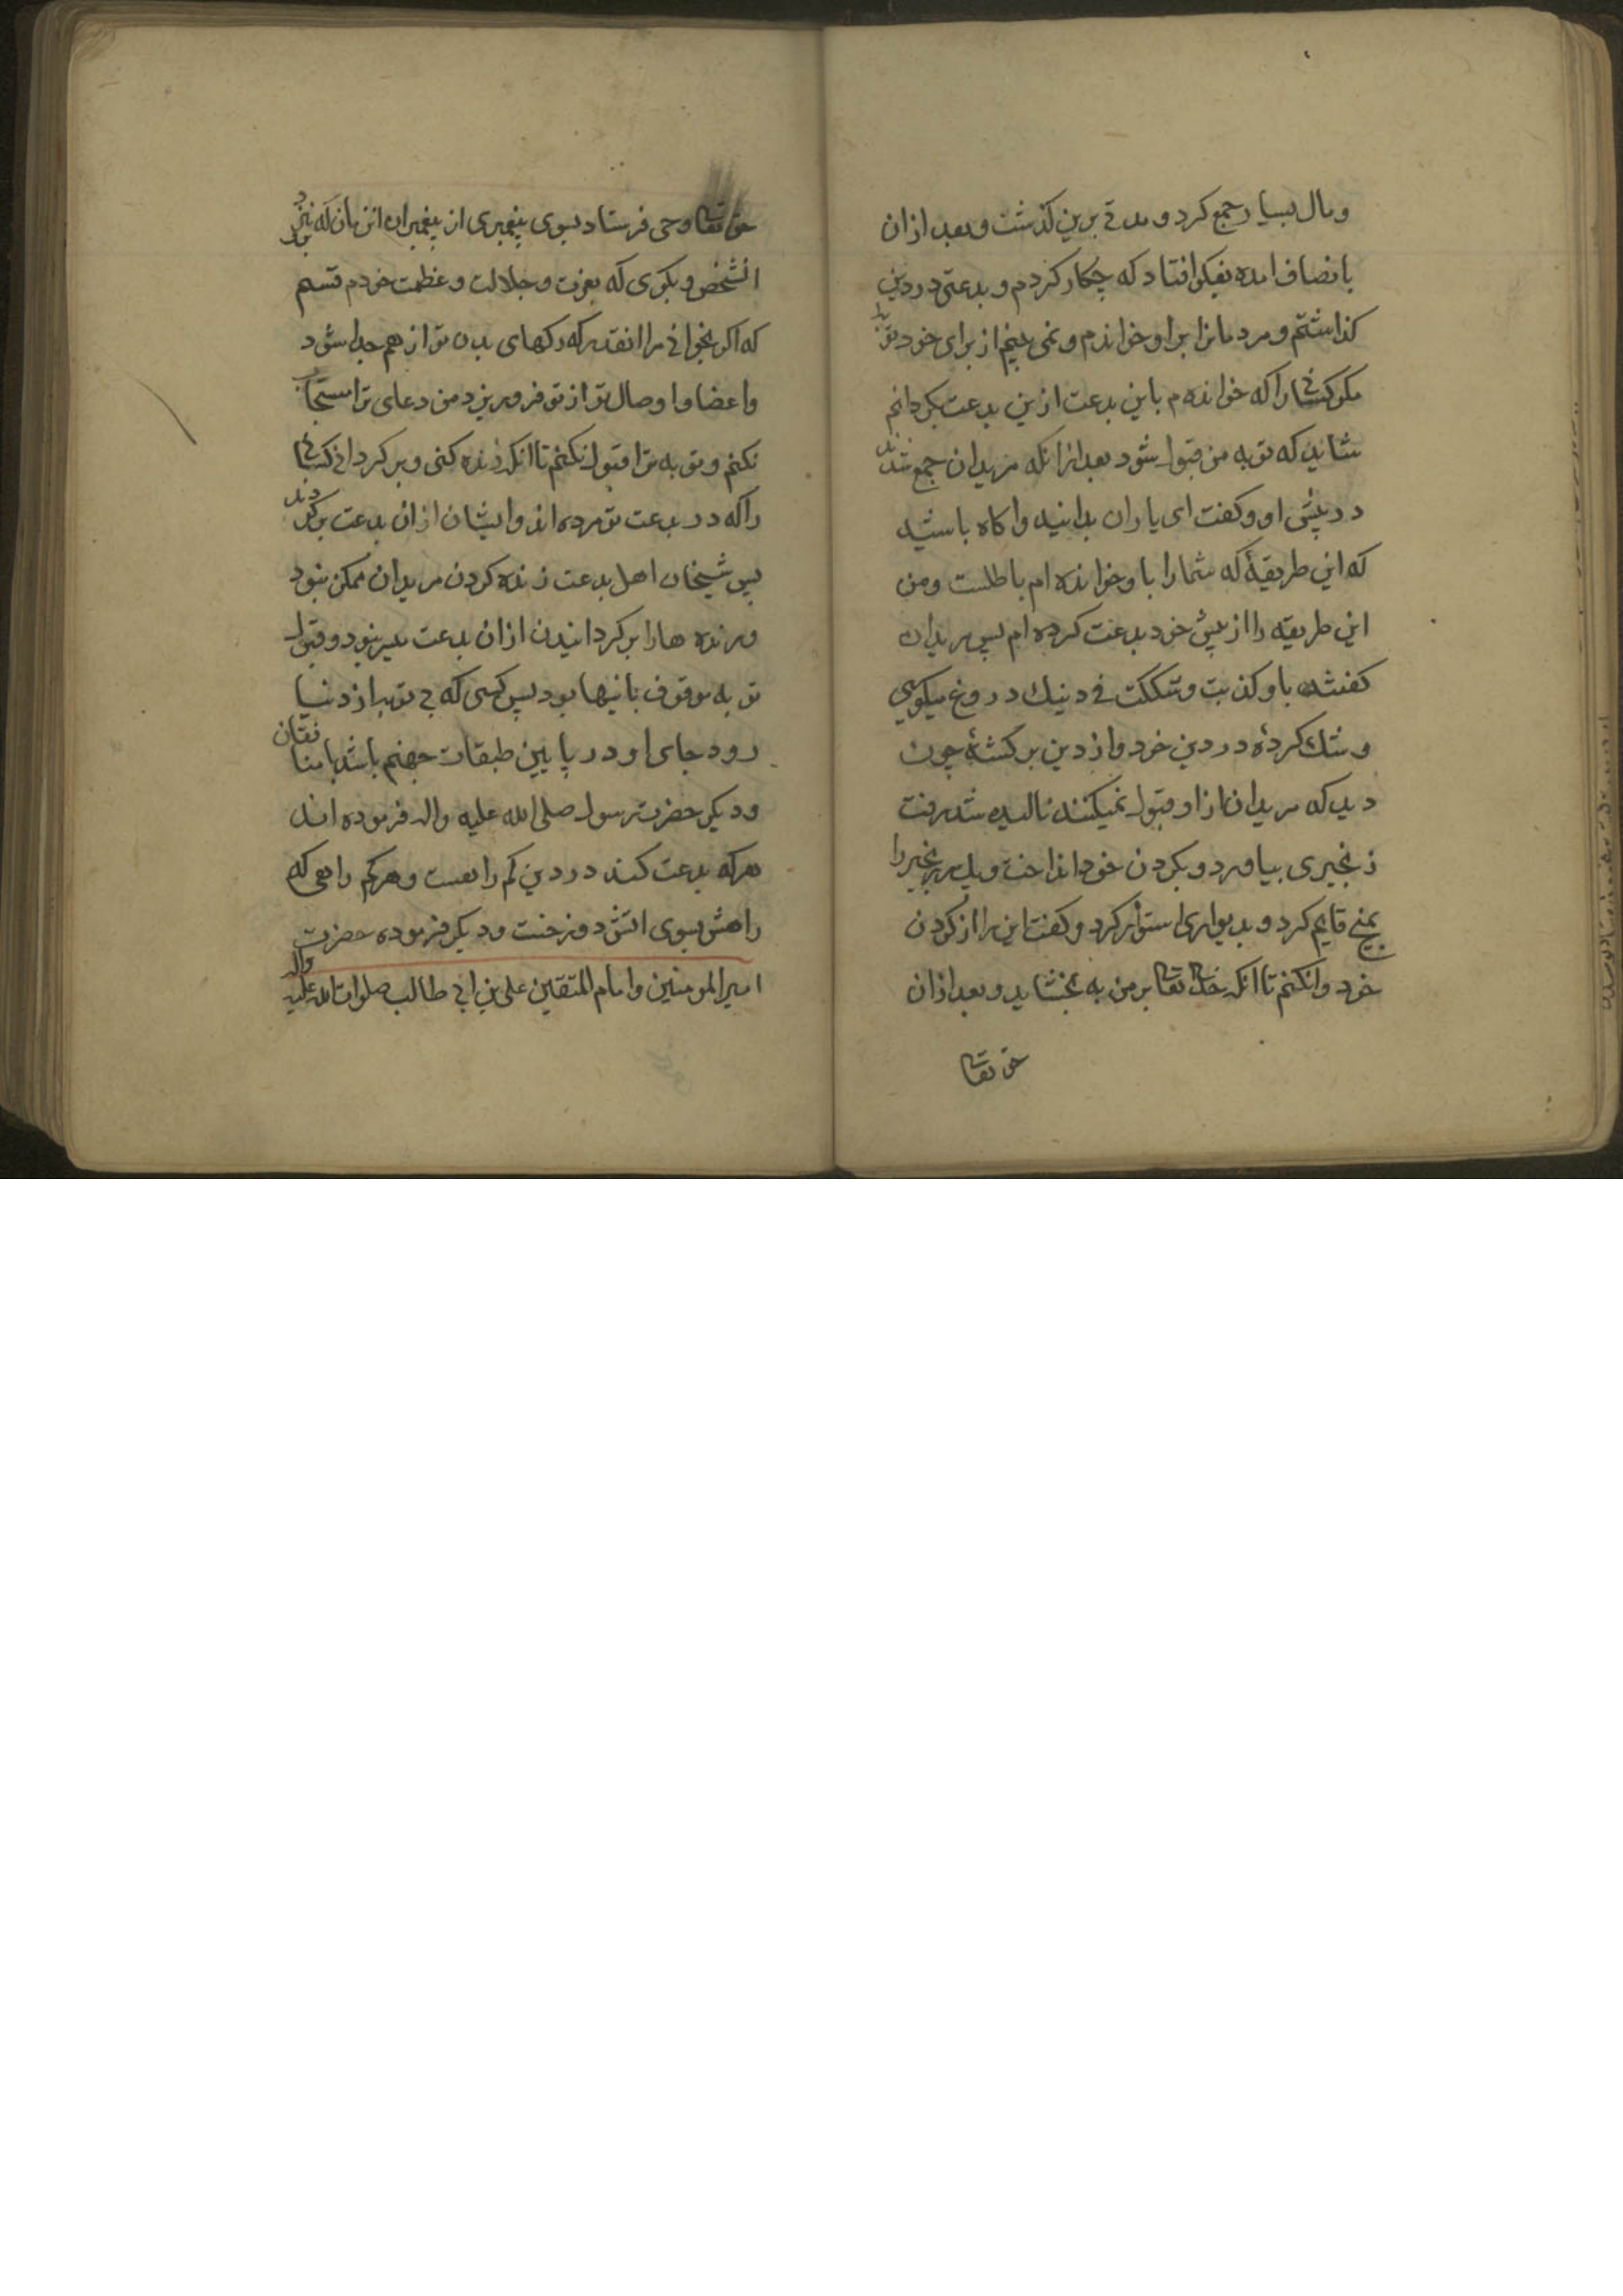 ومال بسیار جمع کرد و مدتی برین کذشت و بعد ازان
بانصاف امده بفکر افتاد که چکار کردم و بدعتی در دین
کذاشتم و مردمانرا براو خواندم و نمی بینم از برای خود توبه
مکر کسانی را که خوانده م باین بدعت ازین بدعت بکردانم
شاید که توبه من قبول شود بعد ازانکه مریدان جمع شدند
در پیش او و کفت ای یاران بدانید واکاه باشید
که این طریقهٔ که شما را باو خوانده ام باطلست ومن
این طریقه را از پیش خود بدعت کرده ام پس مریدان
کفتند باو کذبت و شککت فی دینك دروغ میکویی
و شك کردهٔ در دین خود واز دین برکشتهٔ چون
دید که مریدان ازاو قبول نمیکنند نالیده شد رفت
زنجیری بیاورد و بکردن خود انداخت و یك سر زنجیر را
بمیخ قایم کرد و بدیواری استوار کرد و کفت این را از کردن
خود وانکنم تا انکه خدای تعالی برمن به بخشاید و بعد ازان
حق تعالی
حق تعالی وحی فرستاد بسوی پیغمبری از پیغمبران انزمان که نزد
انشخص رو بکوی که بعزت و جلالت و عظمت خودم قسم
که اکر بخوانی مرا انقدر که رکهای بدن تو از هم جدا شود
واعضا و اوصال تو از تو فرو ریزد من دعای ترا استجابت
نکنم و توبه ترا قبول نکنم تا انکه زنده کنی و برکردانی کسانی
را که در بدعت تو مرده اند وایشان ازان بدعت برکردند
پس شیخان اهل بدعت زنده کردن مریدان ممکن نبود
و زنده ها را برکردانیدن ازان بدعت میسر نبود و قبول
توبه موقوف باینها بود پس کسی که بی توبه از دنیا
رود جای او در پایین طبقات جهنم باشد با منافقان
ودیکر حضرت رسول صلی الله علیه واله فرموده اند
هرکه بدعت کند در دین کم راهست و هر کم راهی که
راهش بسوی اتش دوزخست ودیکر فرموده حضرت
امیرالمومنین وامام المتقین علی بن ابی طالب صلوات الله علیه واله